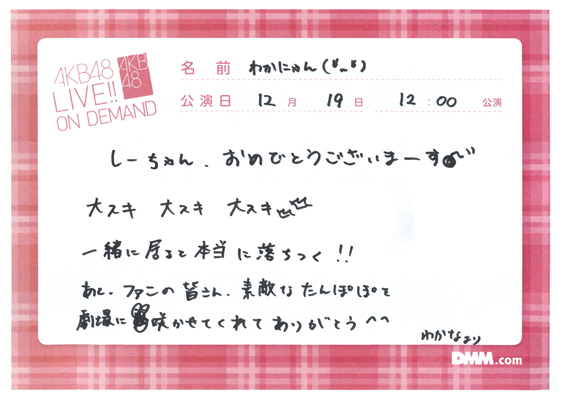 AKB48
LIVE!!
ON DEMAND
AKB
48
名 前 わかにゃん(
公演日 12月 19日 12:00 公演
しーちゃん、おめでとうございまーす
大スキ 大スキ 大スキ
一緒に居ると本当に落ちつく!!
あと、ファンの皆さん、素敵なたんぽぽを
劇場に咲かせてくれてありがとう^^
わかなより
DMM.com